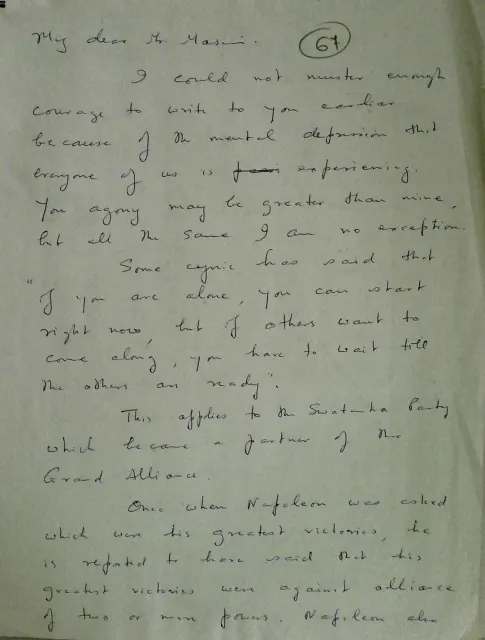 My dear Mr. Masani. 67
I could not muster enough
courage to write to you earlier
because of the mental depression that
everyone of us is experiencing.
You agony may be greater than mine,
but all the same I am no exception.
Some cynic has said that
"If you are alone, you can start
right now, but if others want to
come along, you have to wait till
the others are ready".
This applies to the Swatantra Party
which became a partner of the
Grand Alliance.
Once when Napoleon was asked
which were his greatest victories, he
is reputed to have said that his
greatest victories were against alliance
of two or more powers. Napoleon also